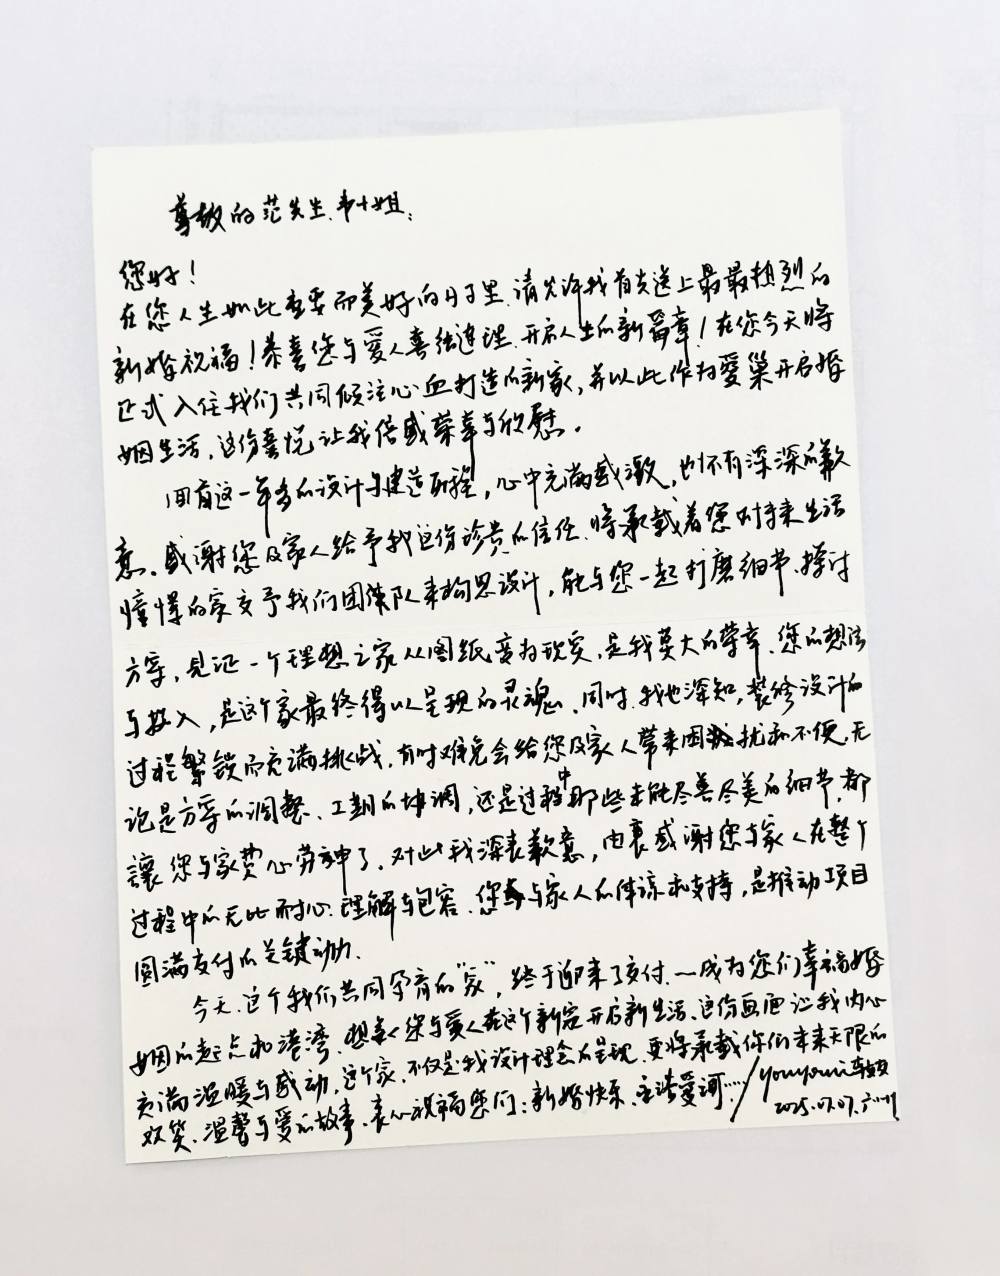 尊敬的范先生、韦小姐:
您好!
在您人生如此重要而美好的日子里,请允许我首先送上最最热烈的
新婚祝福!恭喜您与爱人喜结连理、开启人生的新篇章!在您今天将
正式入住我们共同倾注心血打造的新家,并以此作为爱巢开启婚
姻生活,这份喜悦让我倍感荣幸与欣慰。
回首这一年多的设计与建造历程,心中充满感激,也不有深深的歉
意、感谢您及家人给予我这份珍贵的信任、将承载着您对未来生活
憧憬的家交予我们团队来构思设计,能与您一起打磨细节、探讨
方案,见证一个理想之家从图纸变为现实,是我莫大的荣幸、您的想法
与投入,是这个家最终得以呈现的灵魂、同时、我也深知,装修设计的
过程繁锁而充满挑战、有时难免会给您及家人带来困扰和不便、无
论是方案的调整、工期的协调,还是过程中那些未能尽善尽美的细节,都
讓您与家费心劳神了、对此我深表歉意,由衷感谢您与家人在整个
过程中的无比耐心、理解与包容、您与家人的体谅和支持,是推动项目
圆满交付的关键动力、
今天、这个我们共同孕育的“家”,终于迎来了交付、一成为您们幸福婚
姻的起点和港湾、想象您与爱人在这个新家开启新生活、这份画面让我内心
充满温暖与感动、这个家、不仅是我设计理念的呈现、更将承载你们未来无限的
欢笑、温馨与爱的故事、衷心祝福您们:新婚快乐、永浴爱河……/youyou
2025.07.07.广州